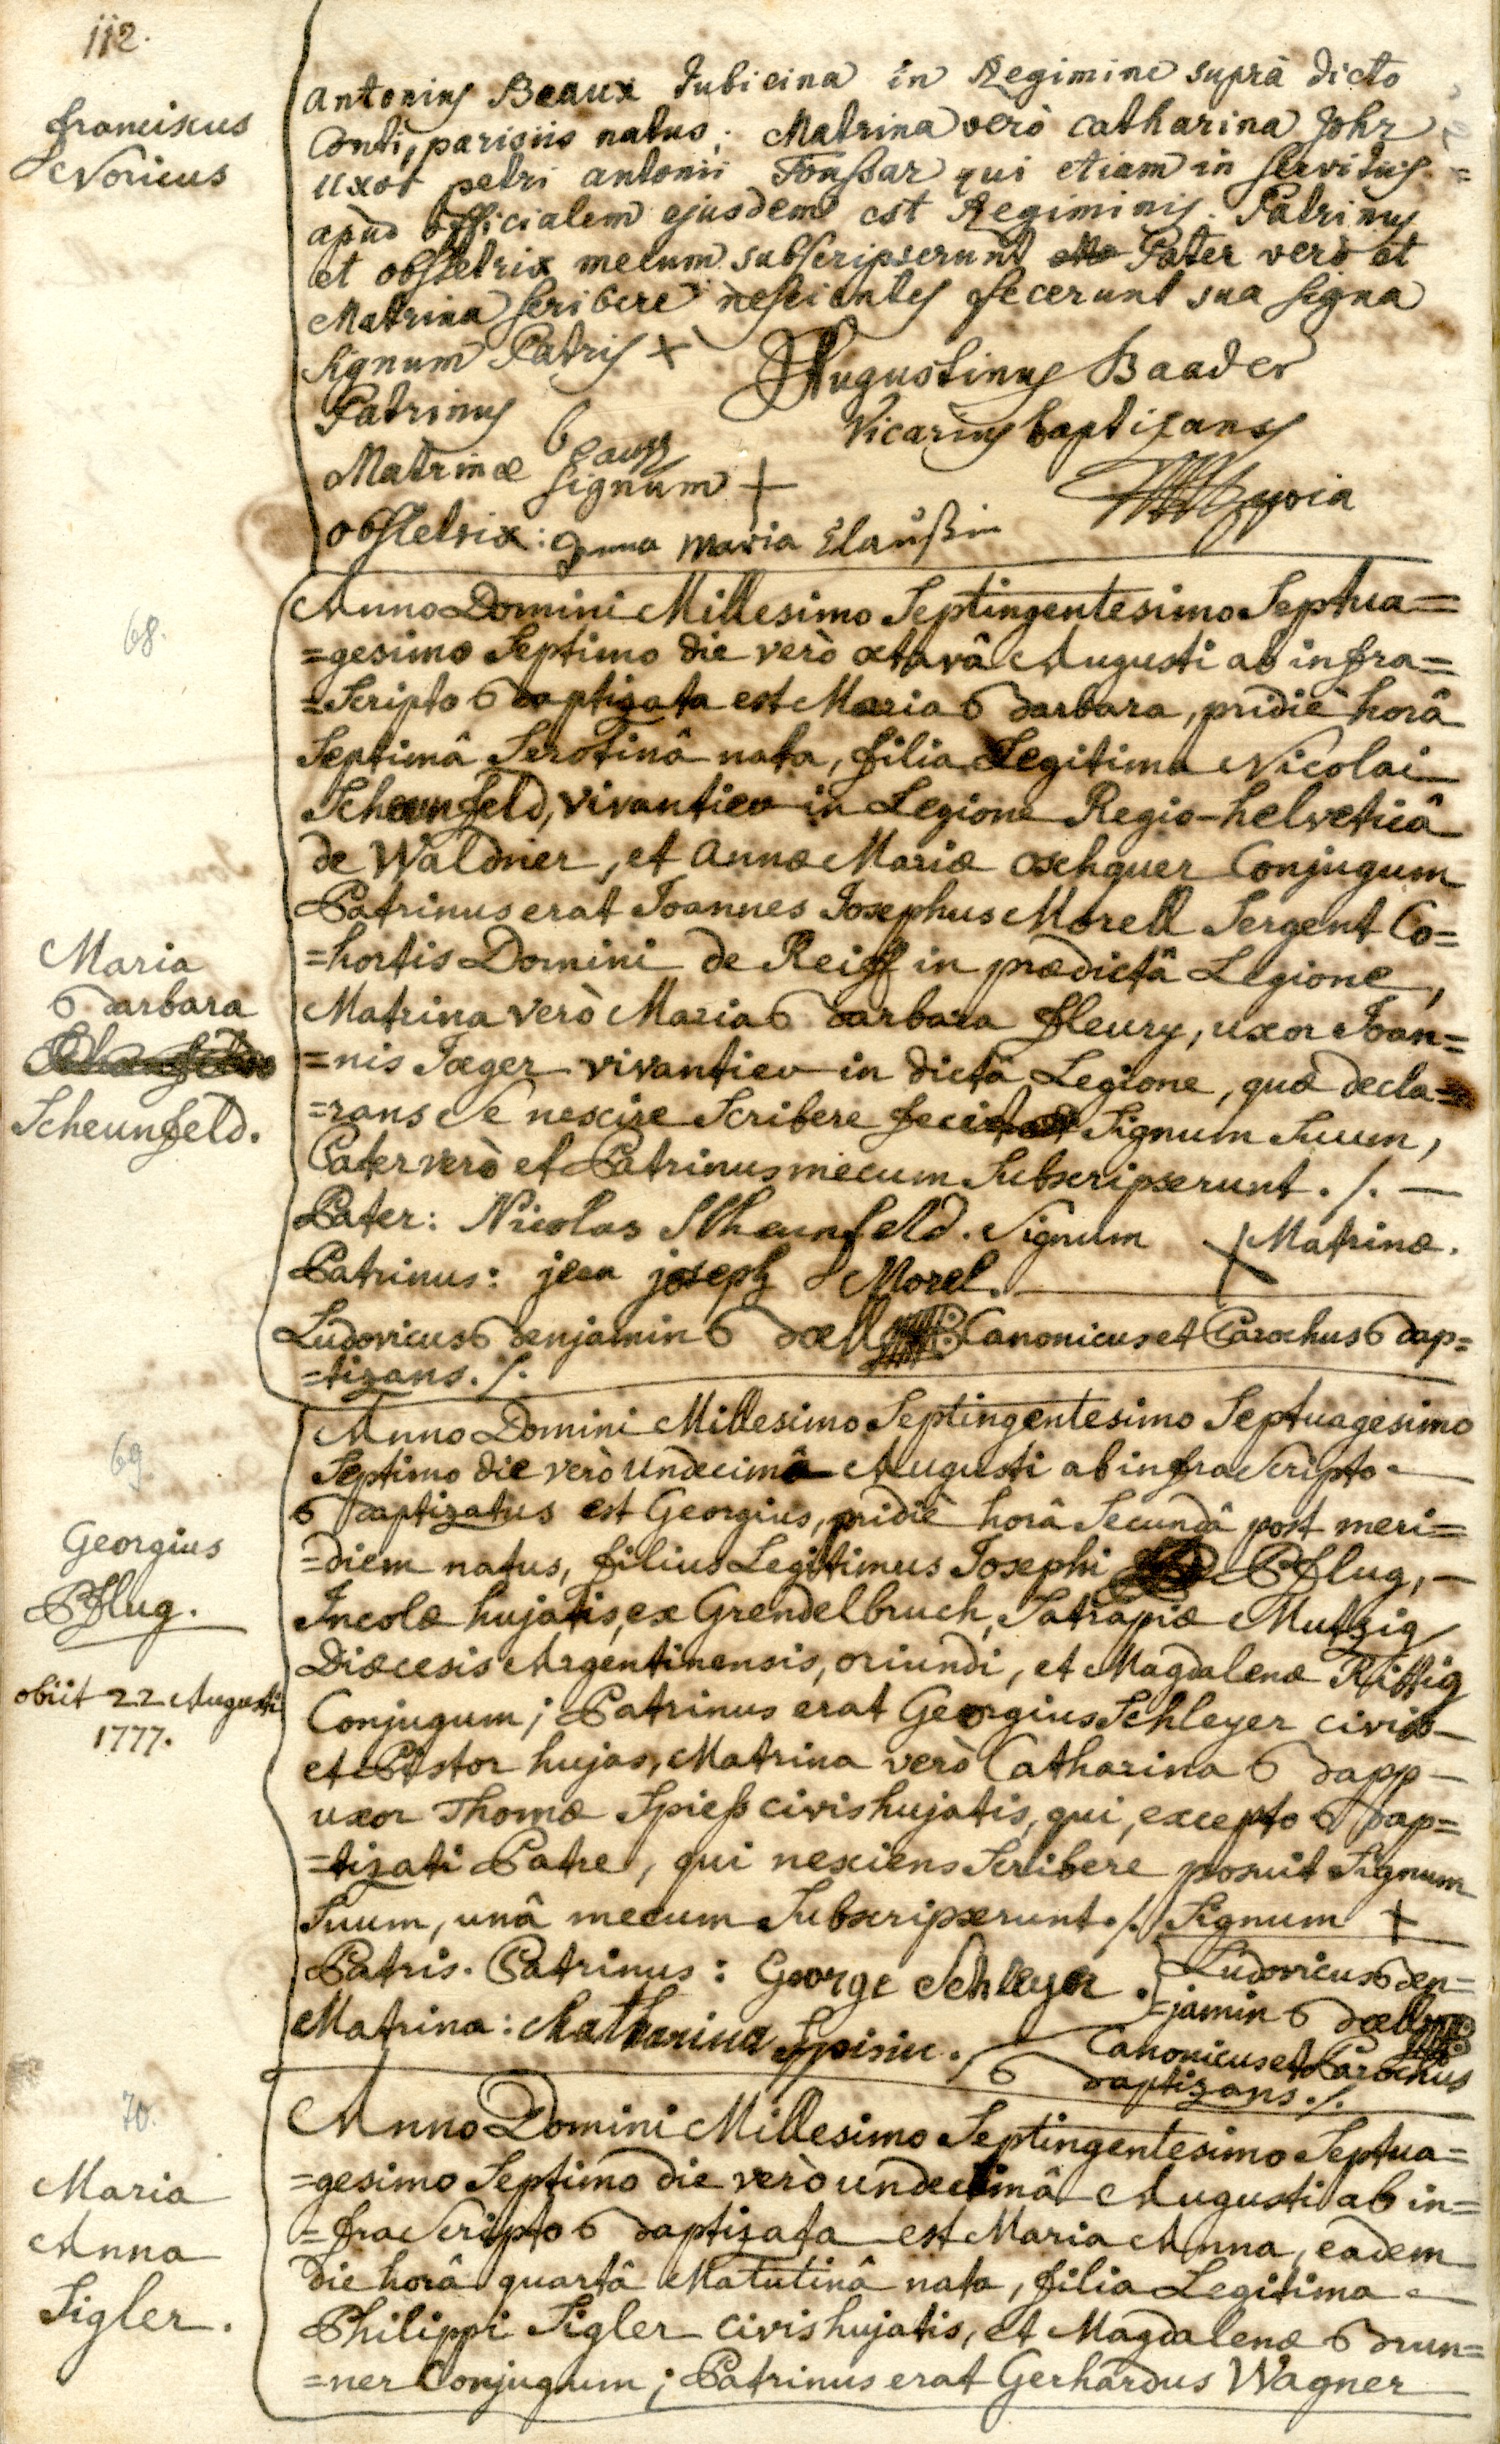 112.
franciscus
Noricus
Antonius Beaux Tubicina in Regimine suprà dicto
Conti, parisiis natus; Matrina verò Catharina Johr
uxor petri antonii Fonssar qui etiam in servitus
apud officialem ejusdem est Regiminis. Patrinus
et obstetrix mecum subscripserunt Pater verò et
Matrina scribere nescientes fecerunt sua signa
signum Patris + Augustinus Baader
Patrinus beaux Vicarius baptizans
Matrinæ signum +
obstetrix: Anna Maria Elaußin
68.
Maria
Barbara
Scheunfeld.
Anno Domini Millesimo Septingentesimo Septua=
=gesimo Septimo die verò octavâ Augusti ab infra=
=Scripto Baptizata est Maria Barbara, pridiè horâ
Septimâ Serotinâ nata, filia Legitima Nicolai
Scheunfeld, vivantier in Legione Regio-helveticâ
de Waldner, et Annæ Mariæ Oschguer Conjugum
Patrinus erat Joannes Josephus Morell Sergent Co=
=hortis Domini de Reiff in prædictâ Legione,
Matrina verò Maria Barbara fleury, uxor Joan=
=nis Jæger vivantier in dictâ Legione, quæ decla=
=rans se nescire Scribere fecit Signum Suum,
Pater verò et Patrinus mecum Subscripserunt ./. —
Pater: Nicolas Scheunfeld. Signum + Matrinæ.
Patrinus: jean joseph Morel.
Ludovicus Benjamin Boell Canonicus et Parochus Bap=
=tizans ./.
69
Georgius
Pflug.
obiit 22 Augusti
1777.
Anno Domini Millesimo Septingentesimo Septuagesimo
Septimo die verò undecimâ Augusti ab infra Scripto
Baptizatus est Georgius, pridiè horâ Secundâ post meri=
=diem natus, filius Legitimus Josephi Pflug, —
Incolæ hujatis, ex Grendelbruch, Satrapiæ Mutzig
Diœcesis Argentinensis, oriundi, et Magdalenæ Rittig
Conjugum; Patrinus erat Georgius Schleyer civis
et Pistor hujas, Matrina verò Catharina Bapp —
uxor Thomæ Spieß civis hujatis, qui, excepto Bap=
=tizati Patre, qui nesciens Scribere posuit Signum
Suum, unâ mecum Subscripserunt ./. Signum +
Patris. Patrinus: George Schleyer. Ludovicus Ben=
=jamin Boell
Matrina: Catharina Spisin. Canonicus et Parochus
Baptizans ./.
70.
Maria
Anna
Sigler.
Anno Domini Millesimo Septingentesimo Septua=
=gesimo Septimo die verò undecimâ Augusti ab in=
=fra Scripto Baptizata est Maria Anna, eâdem
die horâ quartâ Matutinâ nata, filia Legitima
Philippi Sigler civis hujatis, et Magdalenæ Brun=
=ner Conjugum; Patrinus erat Gerhardus Wagner